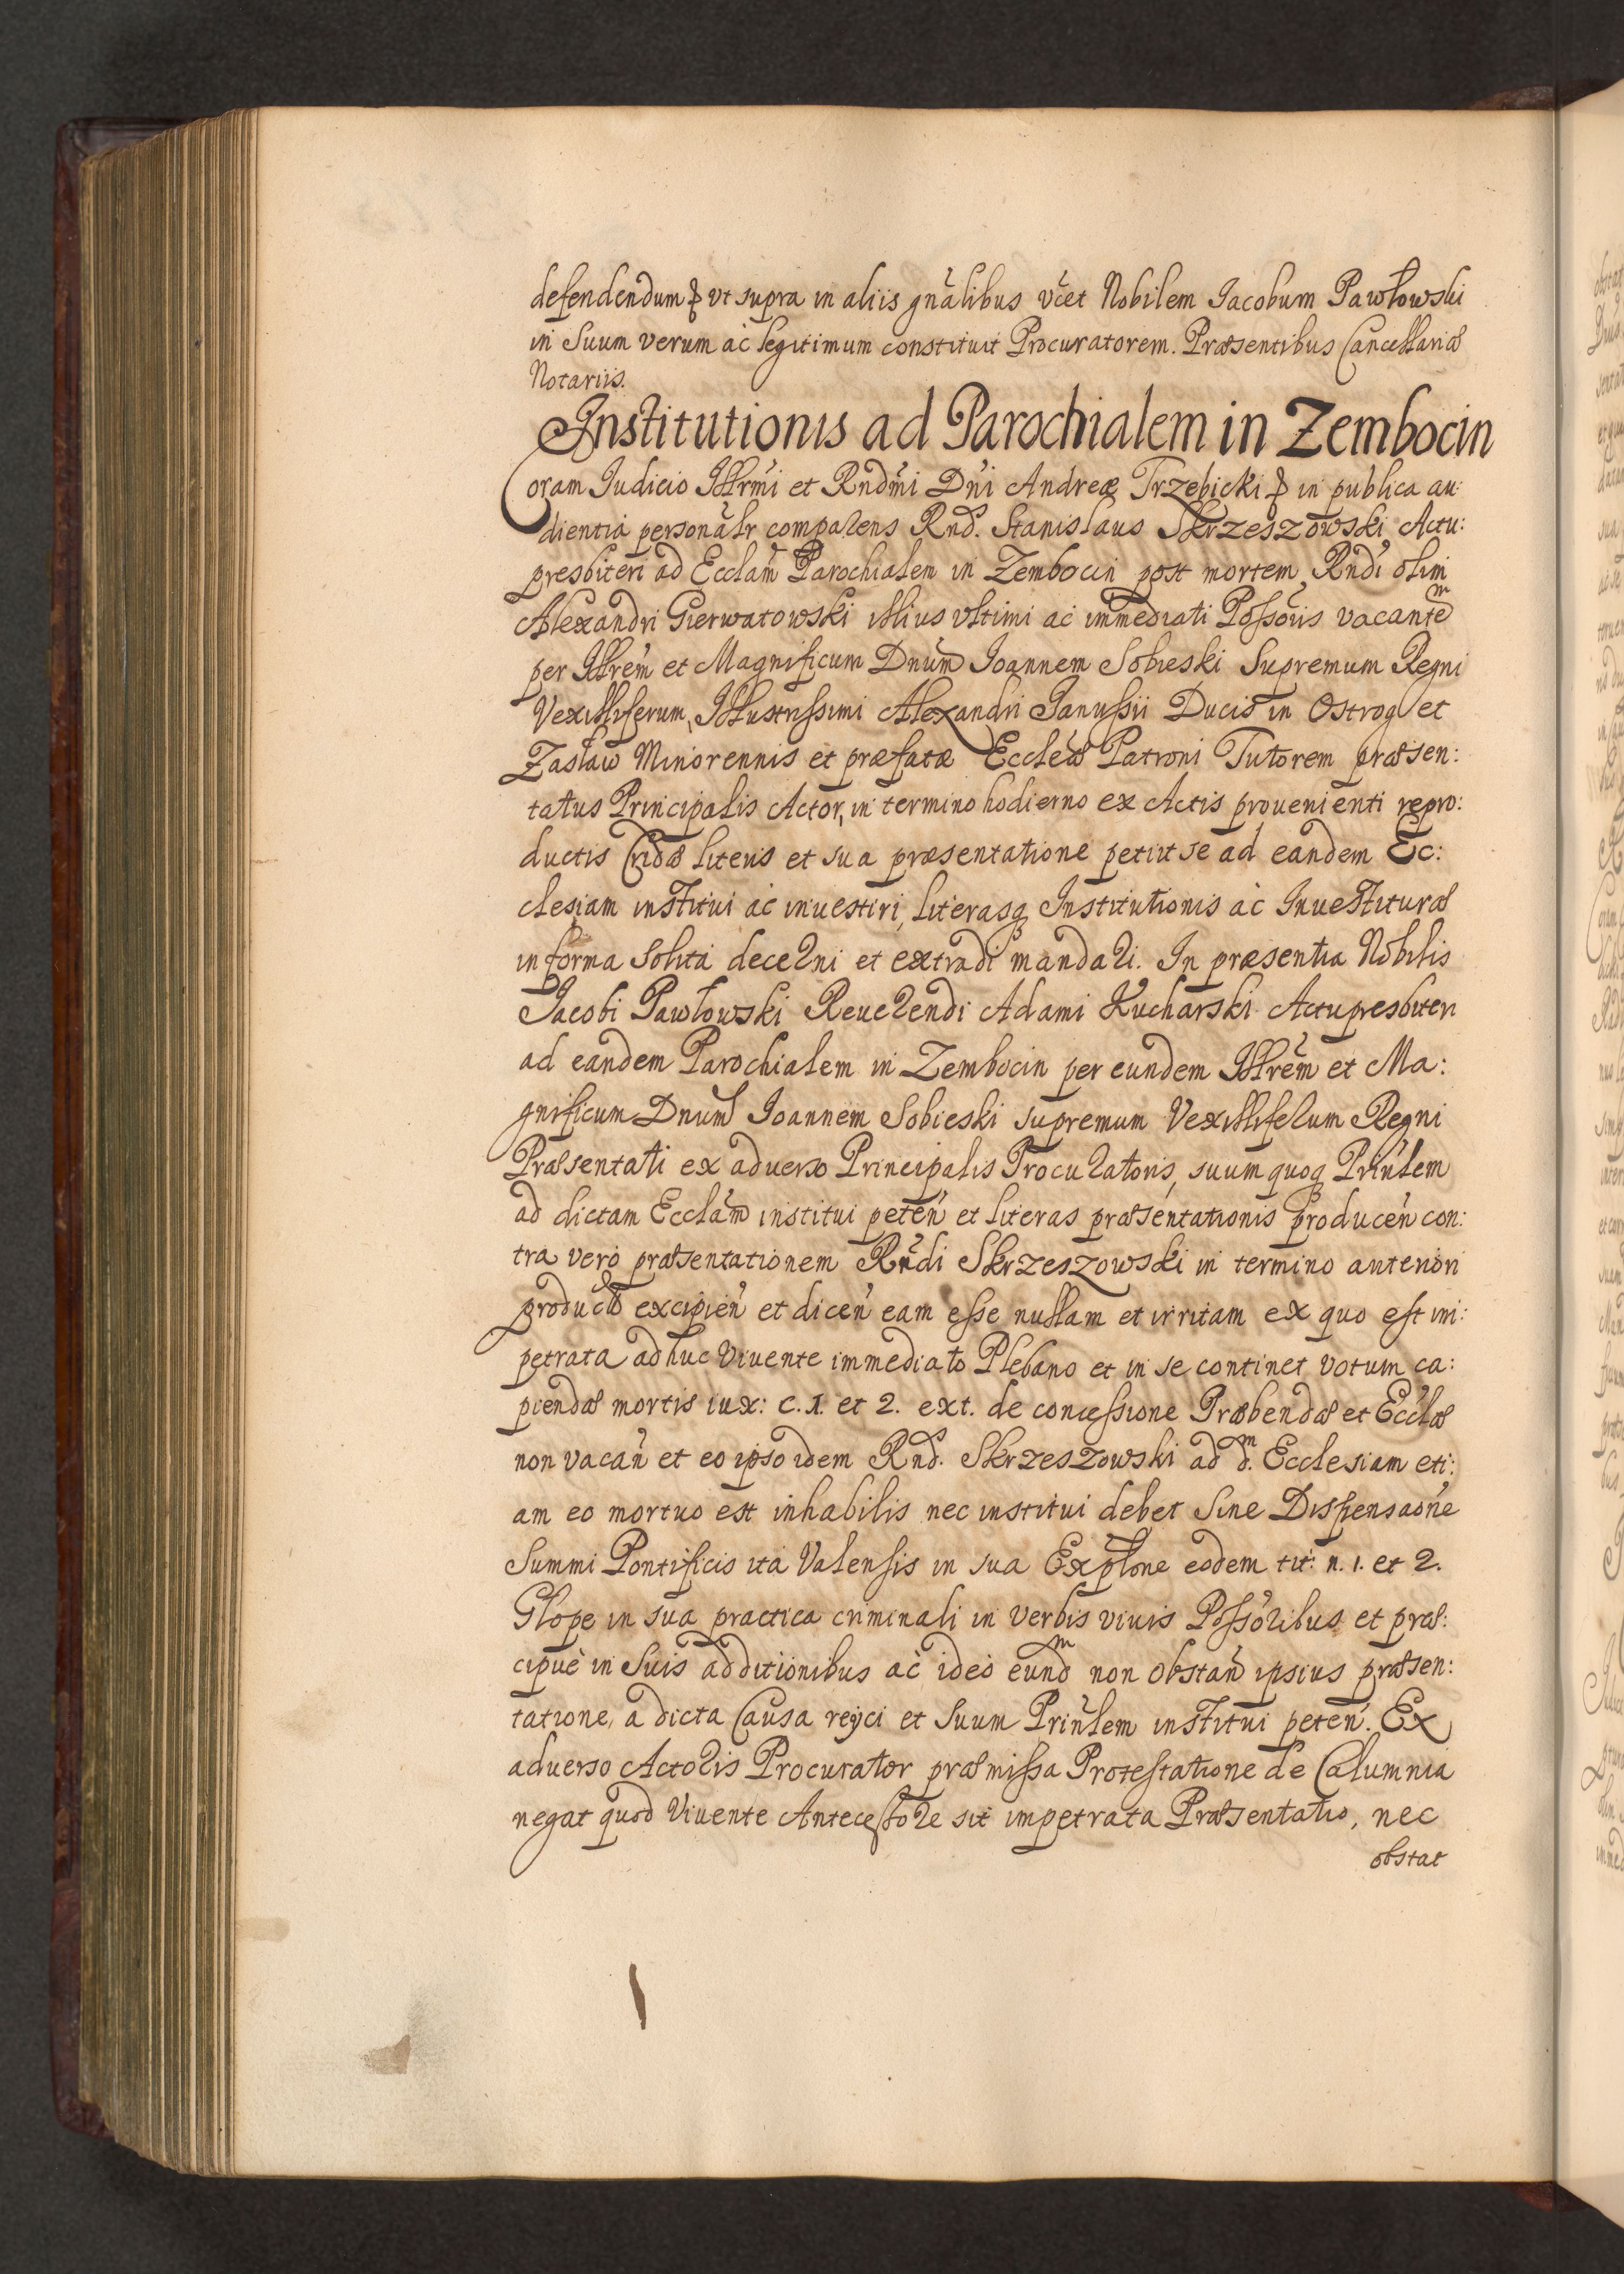 defendendum & vt supra in aliis gnãlibus vc̃et Nobilem Jacobum Pawłowski
in Suum verum ac legitimum constituit Procuratorem. Præsentibus Cancellariæ
Notariis.
Institutionis ad Parochialem in Zembocin
Coram Judicio Illrm̃i et Rndm̃i Dñi Andreæ Trzebicki & in publica au:
dientia personalr̃ comparens Rnd9. Stanislaus Skrzeszowski Actu:
presbiteri ad Ecclam̃ Parochialem in Zembocin post mortem Rndi olim
Alexandri Gierwatowski illius vltimi ac immediati Possõris vacantem
per Illrem̃ et Magnificum Dnum̃ Joannem Sobieski Supremum Regni
Vexilliferum, Illustrissimi Alexandri Janussii Ducis in Ostrog et
Zasław Minorennis et præfatæ Eccleæ Patroni Tutorem præsen:
tatus Principalis Actor, in termino hodierno ex Actis prouenienti repro:
ductis Cridæ literis et sua præsentatione petiit se ad eandem Ec:
clesiam institui ac inuestiri, literasq Institutionis ac Inuestituræ
in forma solita decerni et extradi mandari. In præsentia Nobilis
Jacobi Pawłowski Reuerendi Adami Kucharski Actupresbiteri
ad eandem Parochialem in Zembocin per eundem Illrem̃ et Ma:
gnificum Dnum̃ Joannem Sobieski supremum Vexilliferum Regni
Præsentati ex aduerso Principalis Procuratoris, suum quoq Prinlem̃
ad dictam Ecclam̃ institui peteñ et literas præsentationis produceñ con:
tra vero præsentationem Rñdi Skrzeszowski in termino anteriori
productæ excipieñ et diceñ eam esse nullam et irritam ex quo est im:
petrata adhuc Viuente immediato Plebano et in se continet votum ca:
piendæ mortis iux: c. 1. et 2. ext. de concessione Præbendæ et Ecclæ
non vacañ et eo ipso idem Rnd9. Skrzeszowski ad dm. Ecclesiam eti:
am eo mortuo est inhabilis nec institui debet Sine Dispensaoñe
Summi Pontificis ita Valensis in sua Explone eodem tit: n. 1. et 2.
Glope in sua practica criminali in verbis viuis Possõribus et præ:
cipuè in Suis additionibus ac ideo eundm non obstañ ipsius præsen:
tatione, a dicta Causa reijci et Suum Prinlem̃ institui peteñ. Ex
aduerso Actoris Procurator præmissa Protestatione de Calumnia
negat quod Viuente Antecessore sit impetrata Præsentatio, nec
obstat